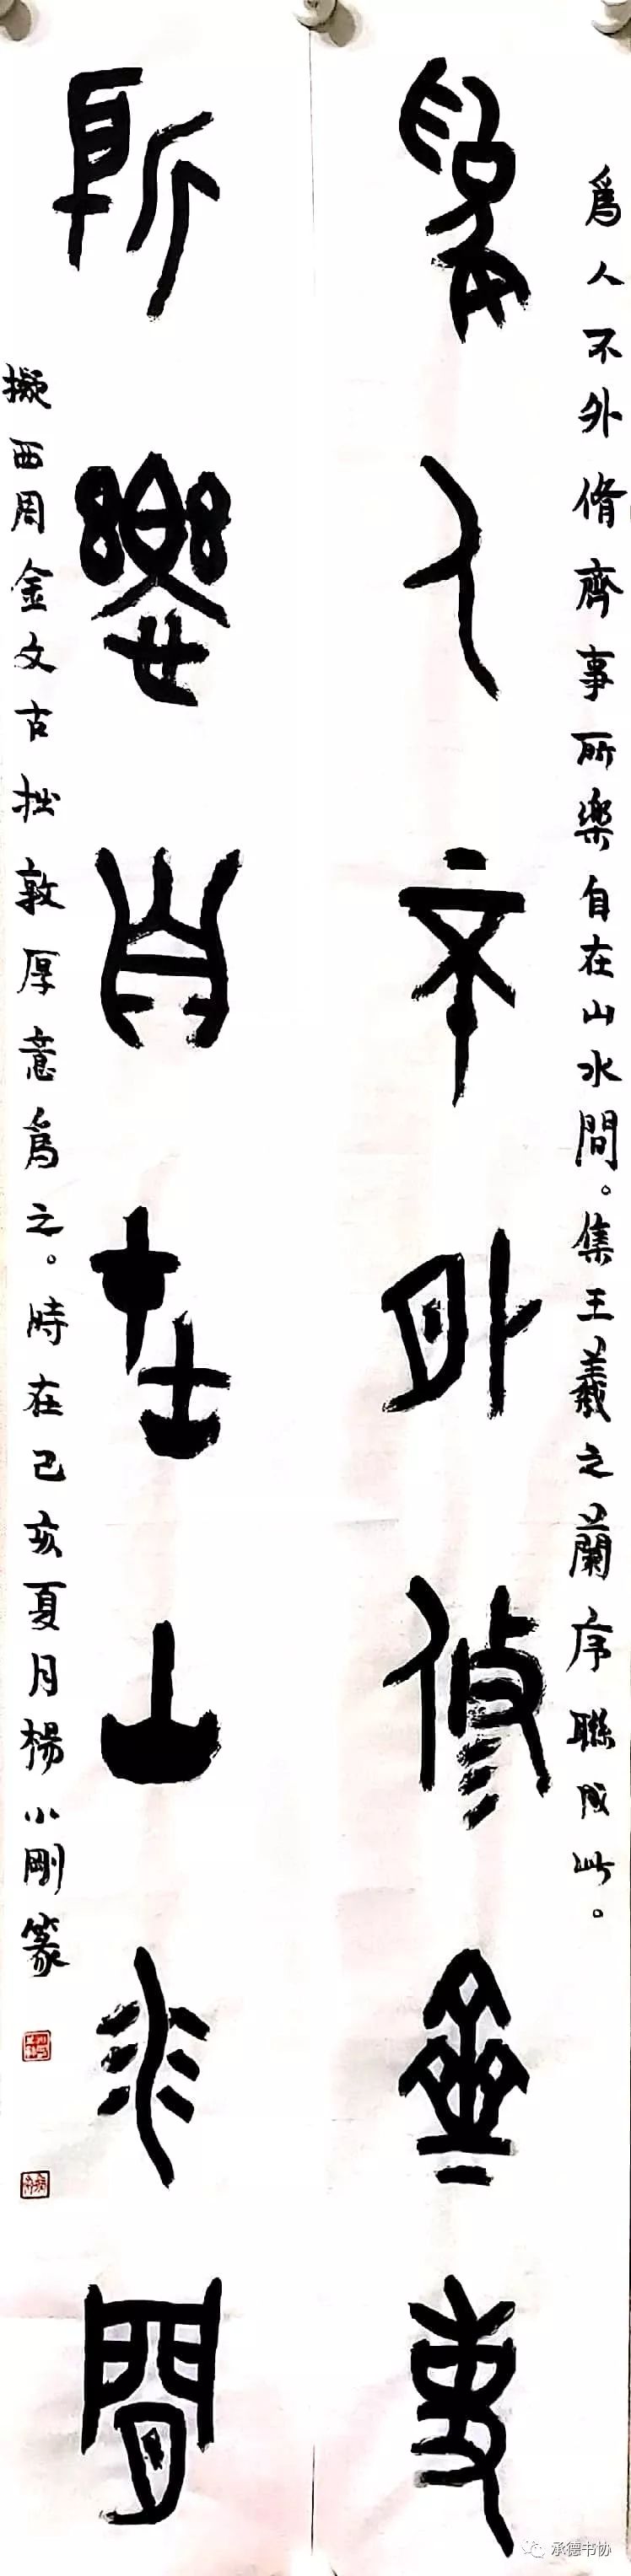 爲人不外脩齊事所樂自在山水間。集王羲之蘭序聯成此。
爲人不外修齊事
所樂自在山水間
擬西周金文古拙敦厚意爲之。時在己亥夏月楊小剛篆
承德书协